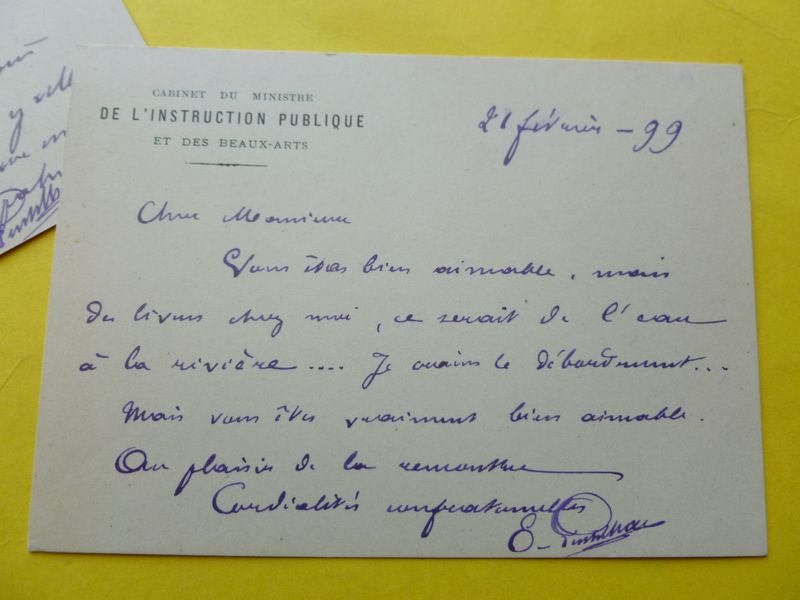 CABINET DU MINISTRE
DE L'INSTRUCTION PUBLIQUE
ET DES BEAUX-ARTS
21 février - 99
Cher Monsieur
Vous êtes bien aimable, mais
des livres chez moi, ce serait de l'eau
à la rivière.... Je crains le débordement...
Mais vous êtes vraiment bien aimable.
Au plaisir de la rencontre
Cordialités confraternelles
E.
y